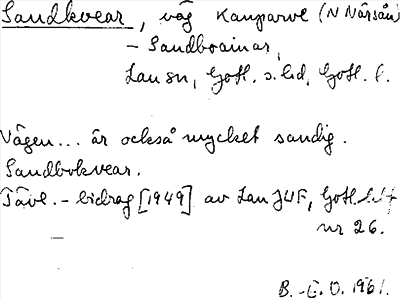 Sandkvear, väg Kauparve (N Närsån)
- Sandboainar,
Lau sn, Gotl. s. hd, Gotl. l.
Vägen... är också mycket sandig.
Sandbokvear.
Tävl.-bidrag [1949] av Lau JUF, Gotl.
nr 26.
B.-E. O. 1961.